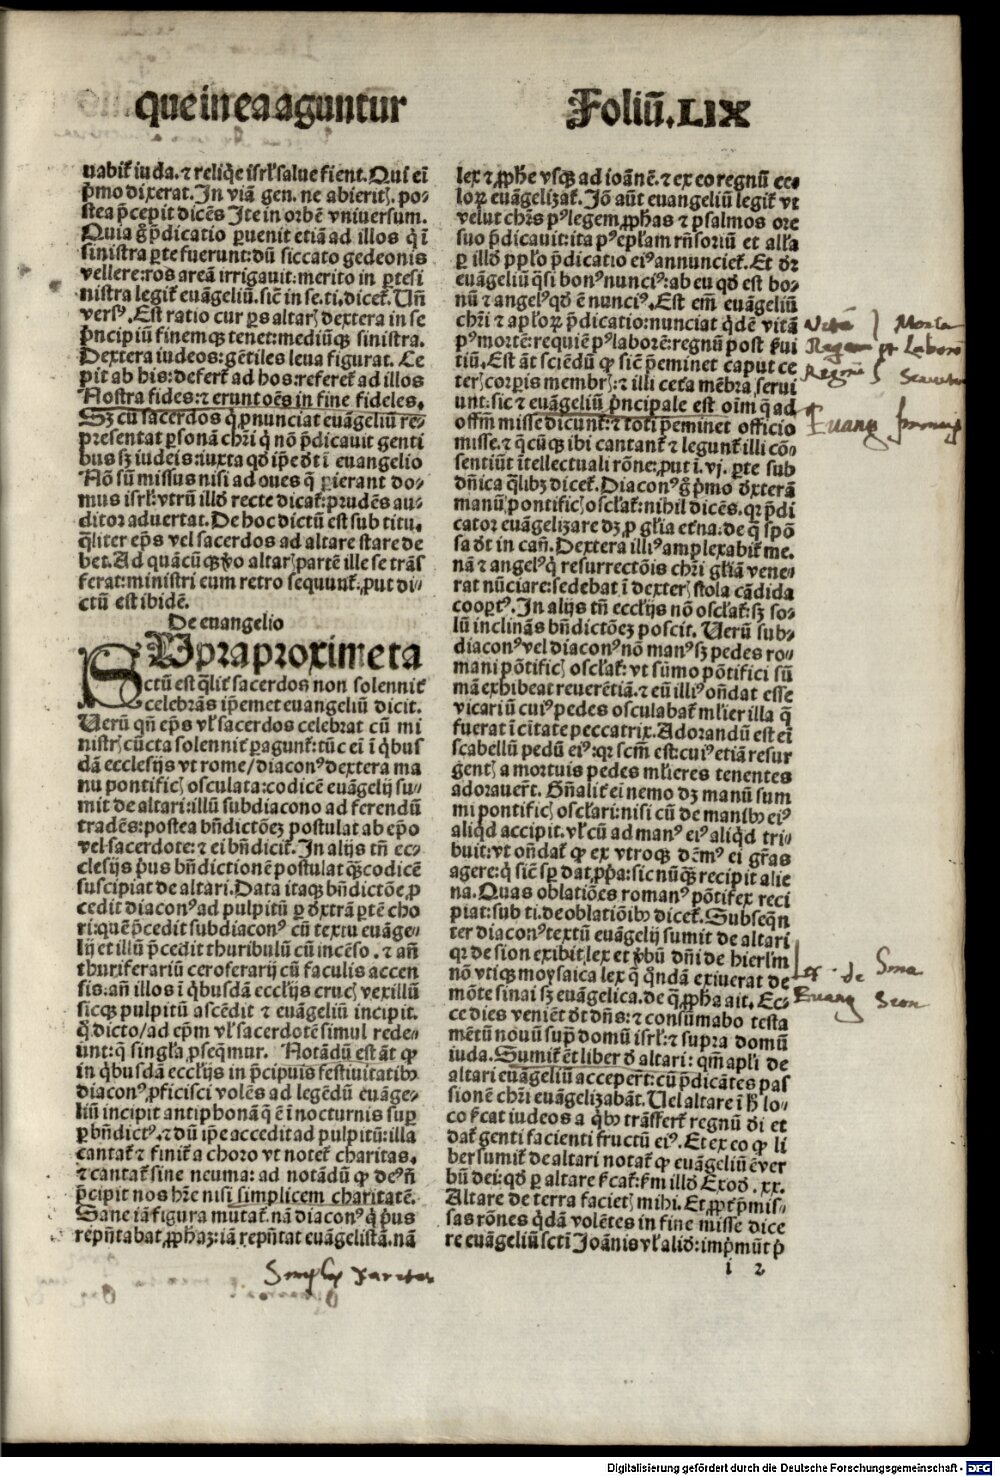 que in ea aguntur
Foliū. LIX
uabit̄ iuda. ⁊ reliq̄e isrl̄ salue fient. Qui eī
p̄mo dixerat. In viā gen. ne abierit. po⸗
stea p̄cepit dicēs Ite in orbē vniuersum.
Quia g̊ p̄dicatio ꝑuenit etiā ad illos q̄ ī
sinistra ꝑte fuerunt: dū siccato gedeonis
vellere: ros areā irrigauit: merito in ꝑte si
nistra legit̄ euāgeliū. sic̄ in se. ti. dicet̄. Un̄
versꝰ. Est ratio cur ꝑs altar̄ dextera in se
p̄ncipiū finemq̨ tenet: mediūq̨ sinistra.
Dextera iudeos: gētiles leua figurat. Ce
pit ab his: defert̄ ad hos: referet̄ ad illos
Nostra fides: ⁊ erunt oēs in fine fideles.
Sꝫ cū sacerdos q̇ ꝓnunciat euāgeliū re⸗
presentat ꝑsonā chr̄i q̇ nō p̄dicauit genti
bus sꝫ iudeis: iuxta qd̄ ip̄e dt̄ ī euangelio
Nō sū missus nisi ad oues q̄ ꝑierant do⸗
mus isrl̄: vtrū illd̄ recte dicat̄: prudēs au⸗
ditor aduertat. De hoc dictū est sub titu.
q̄liter ep̄s vel sacerdos ad altare stare de
bet. Ad quācūq̨ v̊o altar̄ partē ille se trās
ferat: ministri eum retro sequunt̄. ꝓut di⸗
ctū est ibidē.
De euangelio
SUpra proxime ta
ctū est q̄lit̄ sacerdos non solennit̄
celebrās ip̄emet euangeliū dicit.
Uerū qn̄ ep̄s vl̄ sacerdos celebrat cū mi
nistr̄ cūcta solennit̄ ꝑagunt̄: tūc eī ī q̇bus
dā ecclesijs vt rome / diaconꝰ dextera ma
nu pontific̄ osculata: codicē euāgelij su⸗
mit de altari: illū subdiacono ad ferendū
tradēs: postea bn̄dictōeꝫ postulat ab ep̄o
vel sacerdote: ⁊ ei bn̄dicit̄. In alijs tn̄ ec⸗
clesijs p̄us bn̄dictionē postulat q̄ꝫ codicē
suscipiat de altari. Data itaq̨ bn̄dictōe, ꝓ
cedit diaconꝰ ad pulpitū ꝑ dxtrā ꝑtē cho
ri: quē p̄cedit subdiaconꝰ cū textu euāge⸗
lij et illū p̄cedit thuribulū cū incēso. ⁊ an̄
thuriferariū ceroferarij cū faculis accen
sis: an̄ illos ī q̇busdā eccl̄ijs cruc̄ vexillū
sicq̨ pulpitū ascēdit ⁊ euāgeliū incipit.
q̊ dicto / ad ep̄m vl̄ sacerdotē simul rede⸗
unt: q̄ singl̄a ꝓseq̄mur. Notādū est āt ꝙ
in q̇busdā eccl̄ijs in p̄cipuis festiuitatibꝰ
diaconꝰ, ꝓficisci volēs ad legēdū euāge⸗
liū incipit antiphonā q̄ ē ī nocturnis sup
ꝑ bn̄dictꝰ. ⁊ dū ip̄e accedit ad pulpitū: illa
cantat̄ ⁊ finit̄ a choro vt notet̄ charitas.
⁊ cantat̄ sine neuma: ad notādū ꝙ deꝰ n̄
p̄cipit nos hr̄e nisi simplicem charitatē.
Sane iā figura mutat̄. nā diaconꝰ q̇ p̄us
rep̄ntabat ꝓphaꝫ: iā rep̄ntat euāgelistā. nā
lex ⁊ ꝓphe vsq̨ ad ioānē. ⁊ ex eo regnū ce⸗
loꝝ euāgelizat̄. Iō aūt euangeliū legit̄ vt
velut chr̄s pꝰ legem ꝓphas ⁊ psalmos ore
suo p̄dicauit: ita pꝰ ep̄lam rn̄soriū et all'a
ꝑ illd̄ pp̄lo p̄dicatio eiꝰ annunciet̄. Et dr̄
euāgeliū q̄si bonꝰ nunciꝰ: ab eu qd̄ est bo⸗
nū ⁊ angelꝰ qd̄ ē nunciꝰ. Est em̄ euāgeliū
chr̄i ⁊ ap̄loꝝ p̄dicatio: nunciat q̇dē vitā
pꝰ mortē: requiē pꝰ laborē: regnū post ẜui
tiū. Est āt sciēdū ꝙ sic̄ p̄eminet caput ce
ter̄ corꝑis membr̄: ⁊ illi ceta mēbra serui
unt: sic ⁊ euāgeliū p̄ncipale est oīm q̄ ad
offm̄ misse dicunt̄: ⁊ toti p̄eminet officio
misse. ⁊ q̄cūq̨ ibi cantant̄ ⁊ legunt̄ illi cō⸗
sentiūt ītellectuali rōne: ꝓut ī. vj. ꝑte sub
dn̄ica q̄libꝫ dicet̄. Diaconꝰ g̊ p̄mo dxterā
manū pontific̄ oscl̄at̄: nihil dicēs. qꝛ p̄di
cator euāgelizare dꝫ ꝓ gl̄ia etn̄a: de q̄ spō
sa dt̄ in can̄. Dextera illiꝰ amplexabit̄ me.
nā ⁊ angelꝰ q̇ resurrectōis chr̄i gl̄iā vene⸗
rat nūciare: sedebat ī dexter̄ stola cādida
cooꝑtꝰ. In alijs tn̄ eccl̄ijs nō oscl̄at̄: sꝫ so⸗
lū inclinās bn̄dictōeꝫ poscit. Uerū sub⸗
diaconꝰ vel diaconꝰ nō manꝰ sꝫ pedes ro⸗
mani pōtific̄ osclat̄: vt sūmo pōtifici sū
mā exhibeat reuerētiā. ⁊ eū illiꝰ on̄dat esse
vicariū cuiꝰ pedes osculabat̄ ml̄ier illa q̄
fuerat ī ciuitate peccatrix. Adorandū est eī
scabellū pedū eiꝰ: qꝛ scm̄ est: cuiꝰ etiā resur
gent̄ a mortuis pedes ml̄ieres tenentes
adorauer̄t. Gn̄alit̄ ei nemo dꝫ manū sum
mi pontific̄ oscl̄ari: nisi cū de manibꝰ eiꝰ
aliq̇d accipit. vl̄ cū ad manꝰ eiꝰ aliq̇d tri⸗
buit: vt on̄dat̄ ꝙ ex vtroq̨ dēmꝰ ei gr̄as
agere: q̇ sic̄ sꝑ dat ꝓpa: sic nūq̄ꝫ recipit alie
na. Quas oblatiōes romanꝰ pōtifex reci
piat: sub ti. de oblatiōibꝰ dicet̄. Subseq̄n
ter diaconꝰ textū euāgelij sumit de altari
qꝛ de sion exibit lex et v̊bū dn̄i de hierlm̄
nō vtiq̨ moysaica lex q̄ q̄ndā exiuerat de
mōte sinai sꝫ euāgelica. de q̄ ꝓpha ait. Ec⸗
ce dies veniēt dt̄ dn̄s: ⁊ consūmabo testa
mētū nouū sup̄ domū isrl̄: ⁊ supra domū
iuda. Sumit̄ ēt liber d̄ altari: qm̄ apl̄i de
altari euāgeliū acceper̄t: cū p̄dicātes pas
sionē chr̄i euāgelizabāt. Uel altare ī h̄ lo⸗
co ẜcat iudeos a q̇bꝰ trāsfert̄ regnū di et
dat̄ genti facienti fructū eiꝰ. Et ex eo ꝙ li
ber sumit̄ de altari notat̄ ꝙ euāgeliū ē ver
bū dei: qd̄ ꝑ altare ẜcat̄: ẜm illd̄ Exod̄. xx.
Altare de terra faciet̄ mihi. Et ꝓpt̄ p̄mis⸗
sas rōnes q̇dā volētes in fine misse dice
re euāgeliū scti Joānis vl̄ alid̄: imp̄mūt p̄
i 2
Vita } Morte
Regnū } Seruitiū
Euang
Lex de Sina
Euang Sion
Simplex Karitas
Digitalisierung gefördert durch die Deutsche Forschungsgemeinschaft - DFG